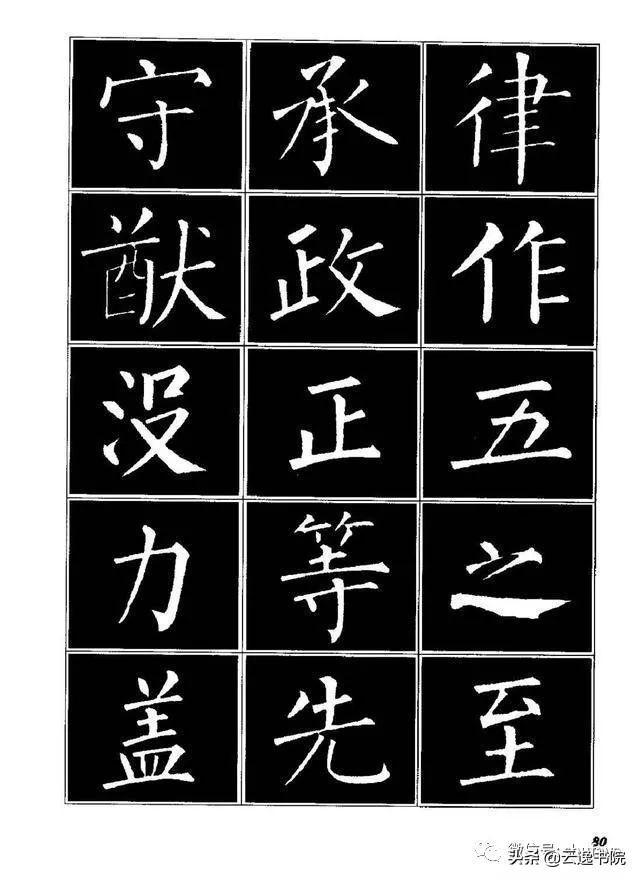 律作五之至
承政正等先
守猷没力盖
80
微信号:
头条 @云逸书院